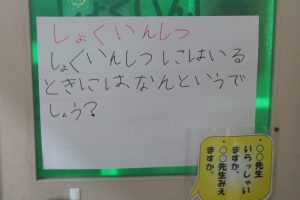 しょくいんしつ
しょくいんしつにはいる
ときには、なんというで
しょう?
・○○先生
いらっしゃい
ますか。
・○○先生みえ
ますか。